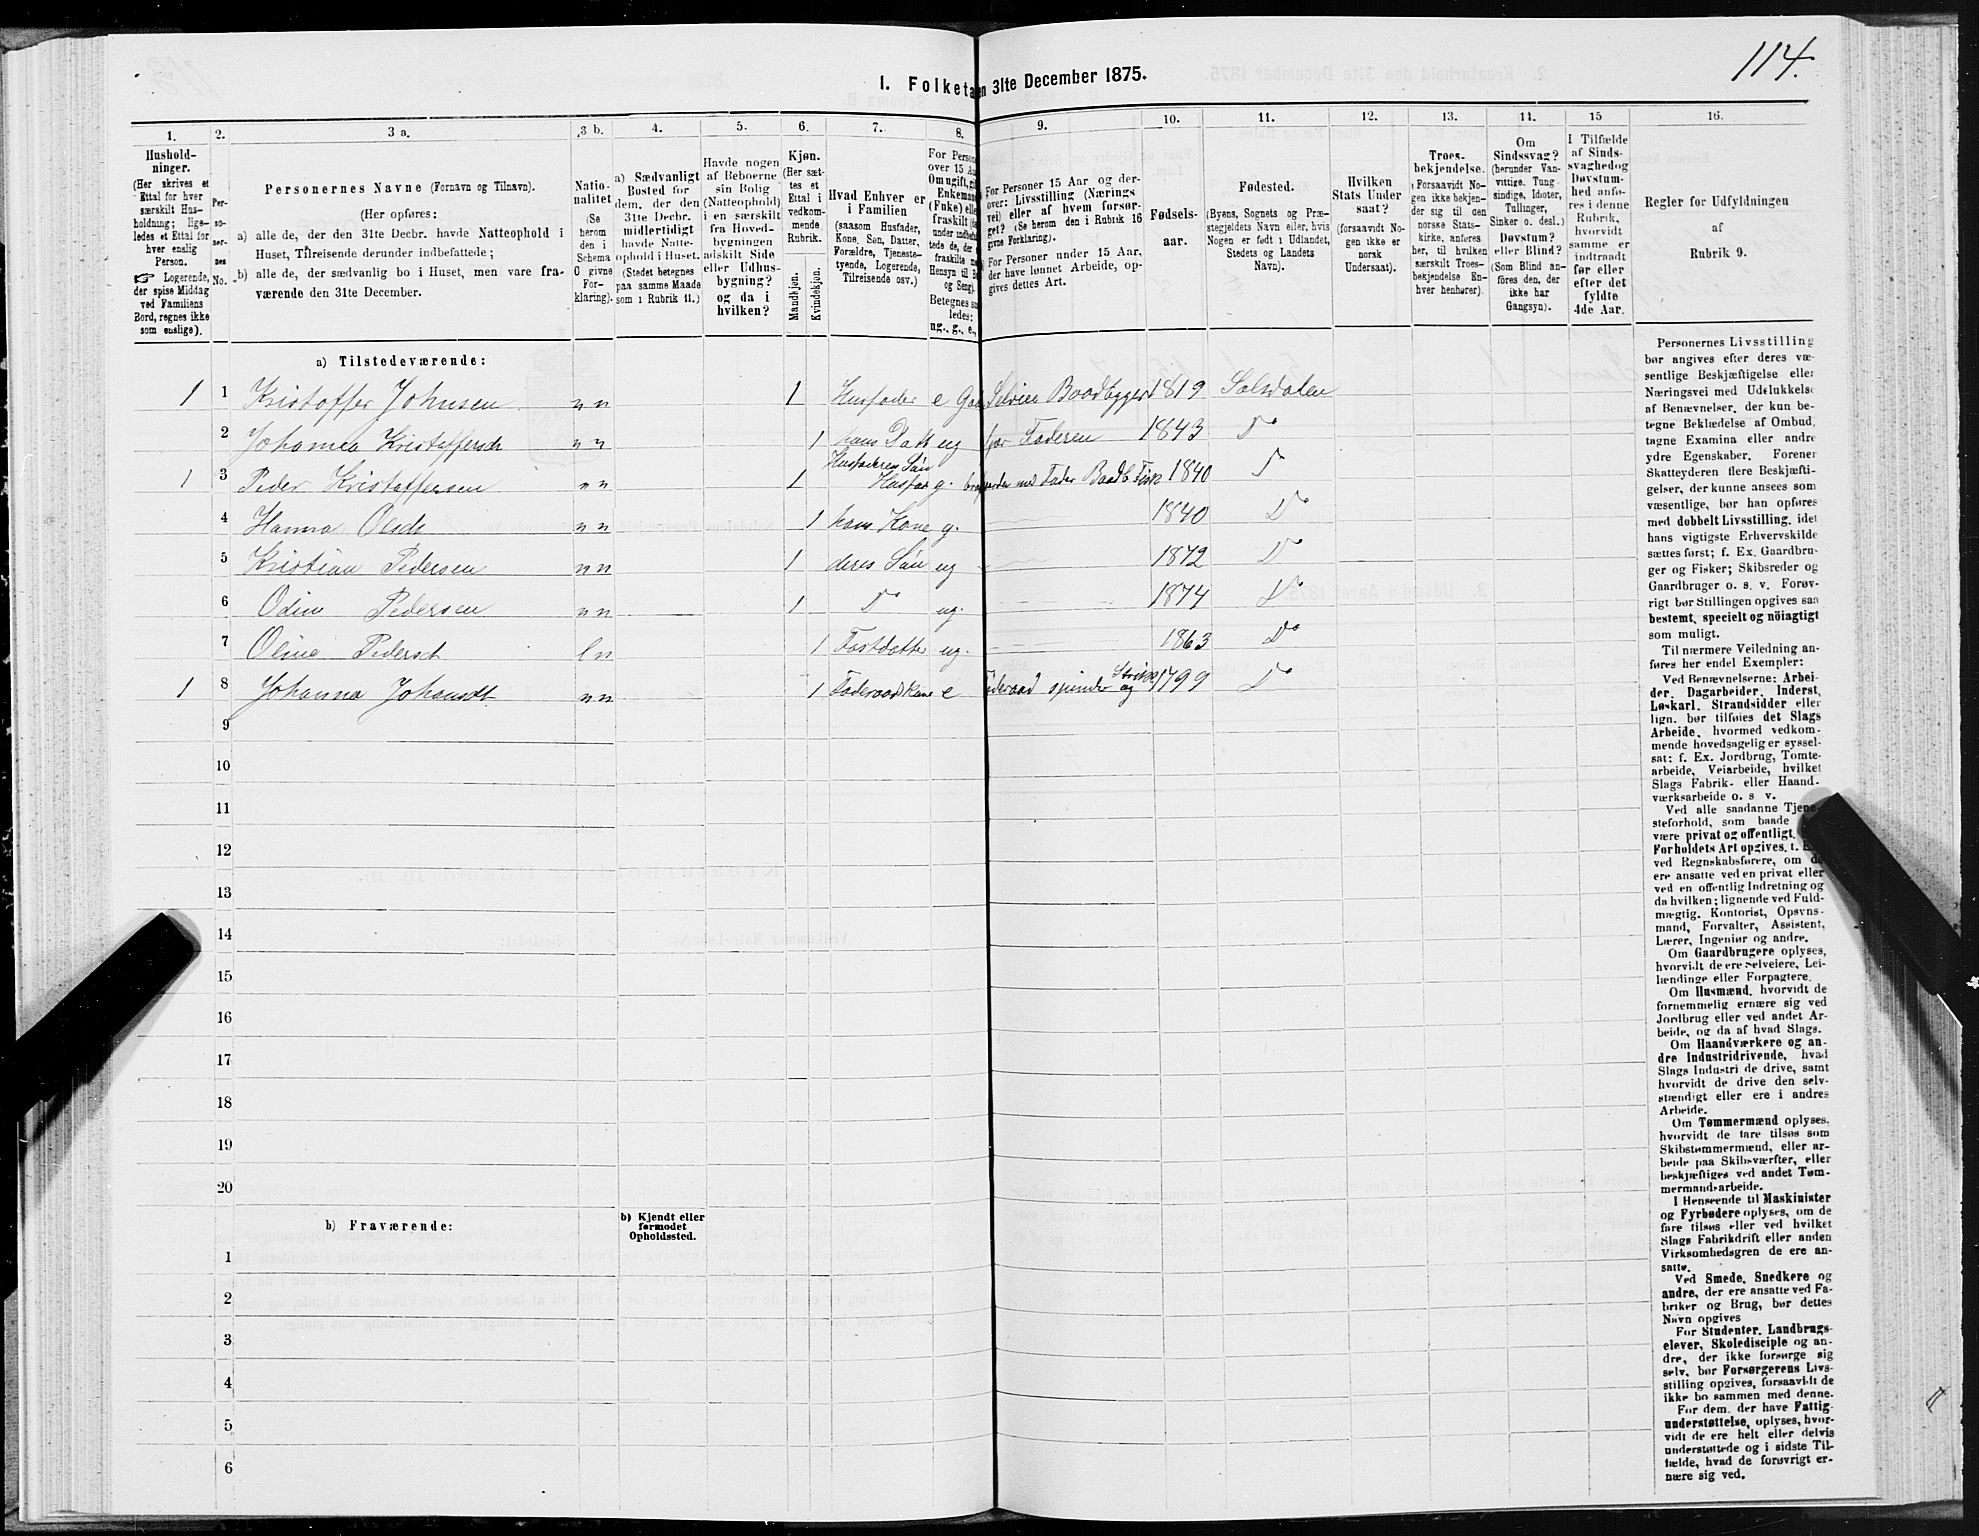 114.
I. Folketa en 31te December 1875.
1. 2. 3 a. 3 b. 4. 5. 6. 7. 8. 9. 10. 11. 12. 13. 14. 15 16.
Hushold-
ninger.
(Her skrives et
Ettal for hver
særskilt Hus-
holdning; lige-
ledes et Ettal for
hver enslig
Person.
☞ Logerende,
der spise Middag
ved Familiens
Bord, regnes ikke
som enslige).
Per-
so-
ner-
nes
No.
Personernes Navne (Fornavn og Tilnavn).
(Her opføres:
a) alle de, der den 31te Decbr. havde Natteophold i
Huset, Tilreisende derunder indbefattede;
b) alle de, der sædvanlig bo i Huset, men vare fra-
værende den 31te December.
Natio-
nalitet
(Se
herom
den i
Schema
O givne
For-
klaring).
a) Sædvanligt
Bosted for
dem, der den
31te Decbr.
midlertidigt
havde Natte-
ophold i Huset.
(Stedet betegnes
paa samme Maade
som i Rubrik 11.)
Havde nogen
af Beboerne
sin Bolig
(Natteophold)
i en særskilt
fra Hoved-
bygningen
adskilt Side
eller Udhus-
bygning?
og da i
hvilken?
Kjøn.
(Her sæt-
tes et
Ettal i
vedkom-
mende
Rubrik.
Mandkjøn.
Kvindekjøn.
Hvad Enhver er
i Familien
(saasom Husfader,
Kone, Søn, Datter,
Forældre, Tjeneste-
tyende, Logerende,
Tilreisende osv.)
For Person
over 15 Aa
Om ugift, gi
Enkeman
(Fuke) elle
fraskilt (he
under indbefat
tede de, der e
fraskilte me
Hensyn til Bo
og Seng).
Betegnes saa
ledes:
ug., g., e.,
For Personer 15 Aar og der-
over: Livsstilling (Nærings
vei) eller af hvem forsør-
get? (Se herom den i Rubrik 16
givne Forklaring).
For Personer under 15 Aar,
der have lønnet Arbeide, op-
gives dettes Art.
Fødsels-
aar.
Fødested.
(Byens, Sognets og Præ-
stegjeldets Navn eller, hvis
Nogen er født i Udlandet,
Stedets og Landets
Navn).
Hvilken
Stats Under
saat?
(forsaavidt No-
gen ikke er
norsk
Undersaat).
Troes-
bekjendelse.
(Forsaavidt No-
gen ikke bekjen-
der sig til den
norske Stats-
kirke, anføres
her, til hvilken
særskilt Troes-
bekjendelse En-
hver henhører).
Om
Sindssvag?
(herunder Van-
vittige. Tung-
sindige, Idioter,
Tullinger,
Sinker o. desl.)
Døvstum?
eller Blind?
(Som Blind an-
føres den, der
ikke har
Gangsyn).
I Tilfælde
af Sinds-
svaghed og
Døvstum-
hed anfø-
res i denne
Rubrik,
hvorvidt
samme er
indtraadt
før eller
efter det
fyldte
4de Aar.
Regler for Udfyldningen
af
Rubrik 9.
a) Tilstedeværende:
1 1 Kristoffer Johnsen n n 1 Husfader e Selveier Baadbygger 1819 Salsdalen
2 Johanna Kristoffersdt n n 1 hans Datt ug for Faderen 1843 Do
Husfaderens Søn
1 3 Peder Kristoffersen n n 1 Husfa g. med Fader Baadb Fisk 1840 Do
4 Hanna Olsdt n n 1 hans Kone g. 1840 Do
5 Kristian Pedersen n n 1 deres Søn ug 1872 Do
6 Odin Pedersen n n 1 Do ug. 1874 Do
7 Oline Pedersdt l n 1 Fostdatte ug. 1863 Do
1 8 Johanna Johansdt n n 1 Føderaadskone e Føderaad spinder og Strikk 1799 Do
9
10
11
12
13
14
15
16
17
18
19
20
b) Fraværende:
b) Kjendt eller
formodet
Opholdssted.
1
2
3
4
5
6
Personernes Livsstilling
bør angives efter deres væ-
sentlige Beskjæftigelse eller
Næringsvei med Udelukkelse
af Benævnelser, der kun be-
tegne Beklædelse af Ombud,
tagne Examina eller andre
ydre Egenskaber. Forener
Skatteyderen flere Beskjæfti-
gelser, der kunne ansees som
væsentlige, bør han opføres
med dobbelt Livsstilling, idet
hans vigtigste Erhvervskilde
sættes først; f. Ex. Gaardbru-
ger og Fisker; Skibsreder og
Gaardbruger o. s. v. Forøv-
rigt bør Stillingen opgives saa
bestemt, specielt og nöiagtigt
som muligt.
Til nærmere Veiledning an-
føres her endel Exempler:
Ved Benævnelserne: Arbei-
der, Dagarbeider, Inderst,
Løskarl, Strandsidder eller
lign. bør tilføies det Slags
Arbeide, hvormed vedkom-
mende hovedsagelig er syssel-
sat; f. Ex. Jordbrug, Tomte-
arbeide, Veiarbeide, hvilket
Slags Fabrik- eller Haand-
værksarbeide o. s v.
Ved alle saadanne Tjene-
steforhold, som baade
være privat og offentligt,
Forholdets Art opgives, t. E
ved Regnskabsførere, om de
ere ansatte ved en privat eller
ved en offentlig Indretning og
da hvilken; lignende ved Fuld-
mægtig, Kontorist, Opsyns-
mand, Forvalter, Assistent,
Lærer, Ingeniør og andre.
Om Gaardbrugere oplyses,
hvorvidt de ere Selveiere, Lei-
lændinge eller Forpagtere.
Om Husmænd, hvorvidt de
fornemmelig ernære sig ved
Jordbrug eller ved andet Ar-
beide, og da af hvad Slags.
Om Haandværkere og an-
dre Industridrivende, hvad
Slags Industri de drive, samt
hvorvidt de drive den selv-
stændigt eller ere i andres
Arbeide.
Om Tømmermænd oplyses,
hvorvidt de fare tilsøs som
Skibstømmermænd, eller ar-
beide paa Skibsværfter, eller
beskjæftiges ved andet Tøm-
mermandsarbeide.
I Henseende til Maskinister
og Fyrbødere oplyses, om de
fare tilsøs eller ved hvilket
Slags Fabrikdrift eller anden
Virksomhedsgren de ere an-
satte.
Ved Smede, Snedkere og
andre, der ere ansatte ved Fa-
briker og Brug, bør dettes
Navn opgives
For Studenter, Landbrugs-
elever, Skoledisciple og an-
dre, der ikke forsørge sig
selv, bør Forsørgerens Livs-
stilling opgives, forsaavidt de
ikke bo sammen med denne.
For dem, der have Fattig-
understøttelse, oplyses, hvor-
vidt de ere helt eller delvis
understøttede og i sidste Til-
fælde, hvad de forøvrigt er-
nære sig ved.